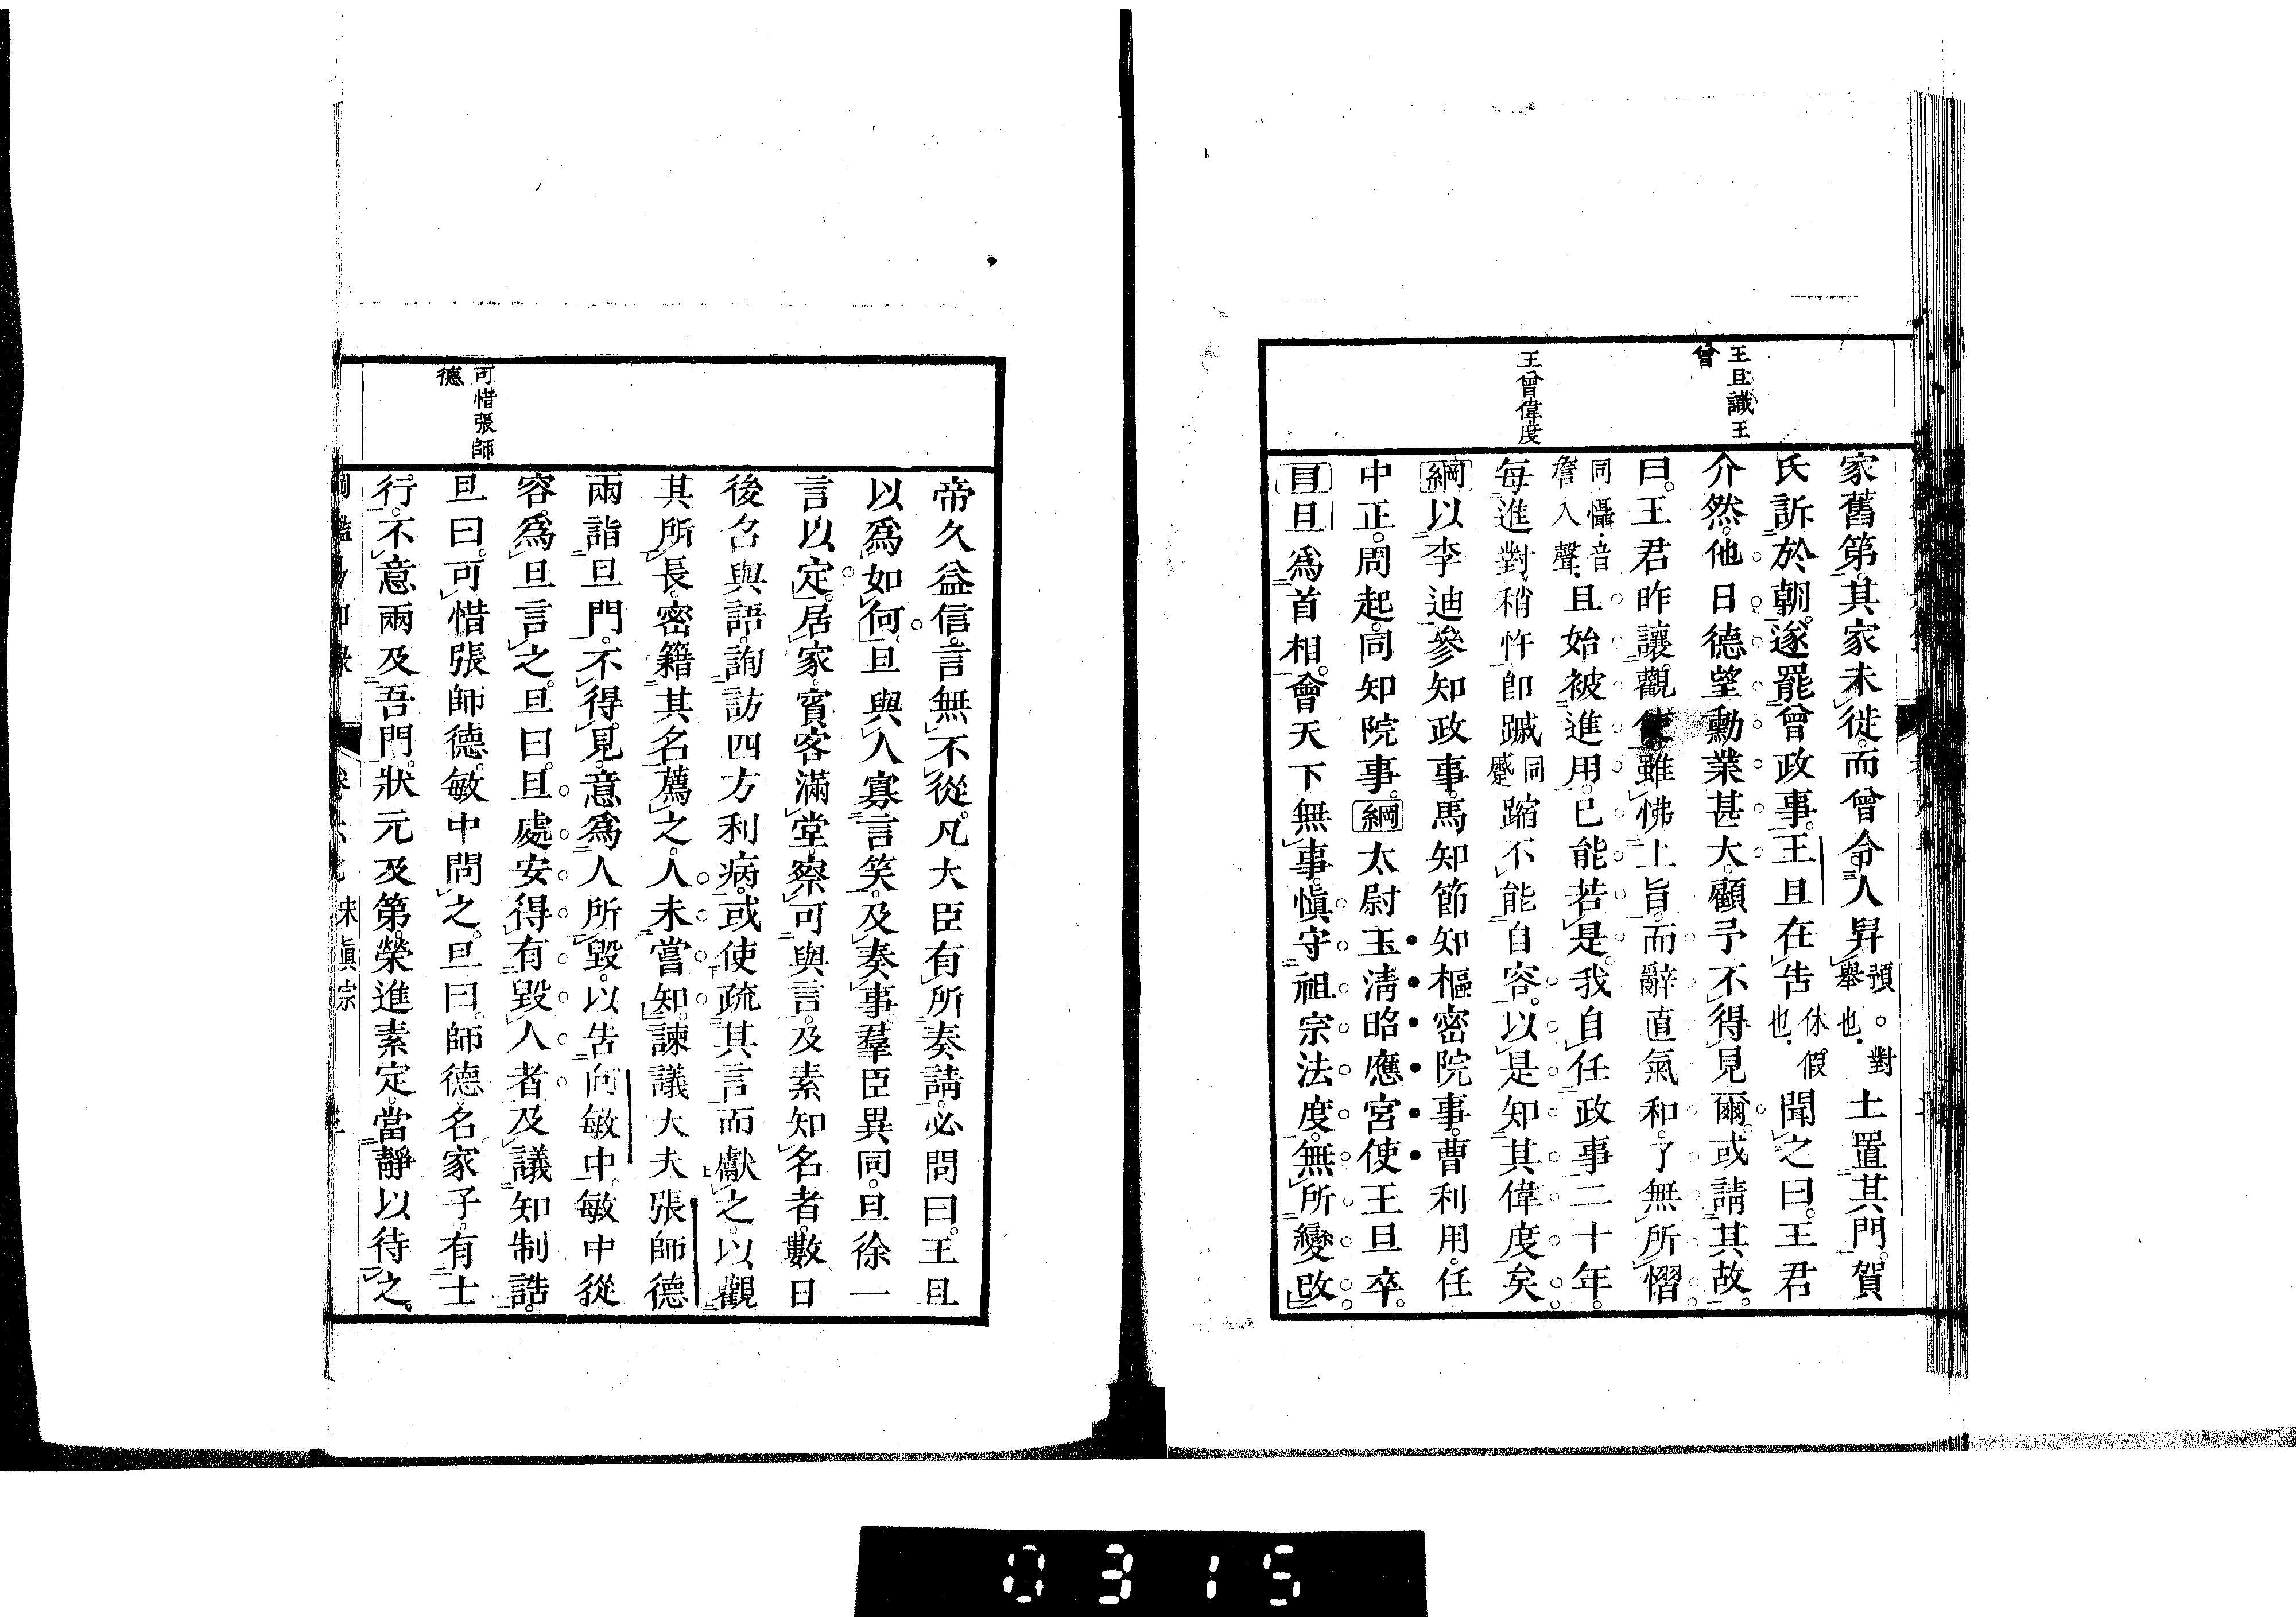 王旦識王
曾
王曾偉度
家舊第。其家未徙。而曾令人舁預舉也。對土置其門。賀
氏訴於朝。遂罷曾政事。王旦在告休假也。聞之曰。王君
介然。他日德望勳業甚大。顧予不得見爾。或請其故。
曰。王君昨讓觀使。雖怫上旨。而辭直氣和。了無所慴
同懾。音詹入聲。且始被進用。已能若是。我自任政事二十年。
每進對。稍忤卽蹙同蹵蹜不能自容。以是知其偉度矣
綱以李迪參知政事。馬知節知樞密院事。曹利用。任
中正。周起。同知院事。綱太尉玉淸昭應宮使王旦卒。
目旦爲首相。會天下無事。愼守祖宗法度。無所變改
可惜張師
德
帝久益信。言無不從。凡大臣有所奏請。必問曰。王旦
以爲如何。旦與人寡言笑。及奏事。羣臣異同。旦徐一
言以定。居家。賓客滿堂。察可與言。及素知名者。數日
後召與語。詢訪四方利病。或使疏其言而獻之。以觀
其所長。密籍其名薦之。人未嘗知。諫議大夫張師德
兩詣旦門。不得見。意爲人所毀。以吿向敏中。敏中從
容爲旦言之。旦曰。旦處安得有毀人者。及議知制誥。
旦曰。可惜張師德。敏中問之。旦曰。師德名家子。有士
行。不意兩及吾門。狀元及第。榮進素定。當靜以待之。
宋眞宗
0315